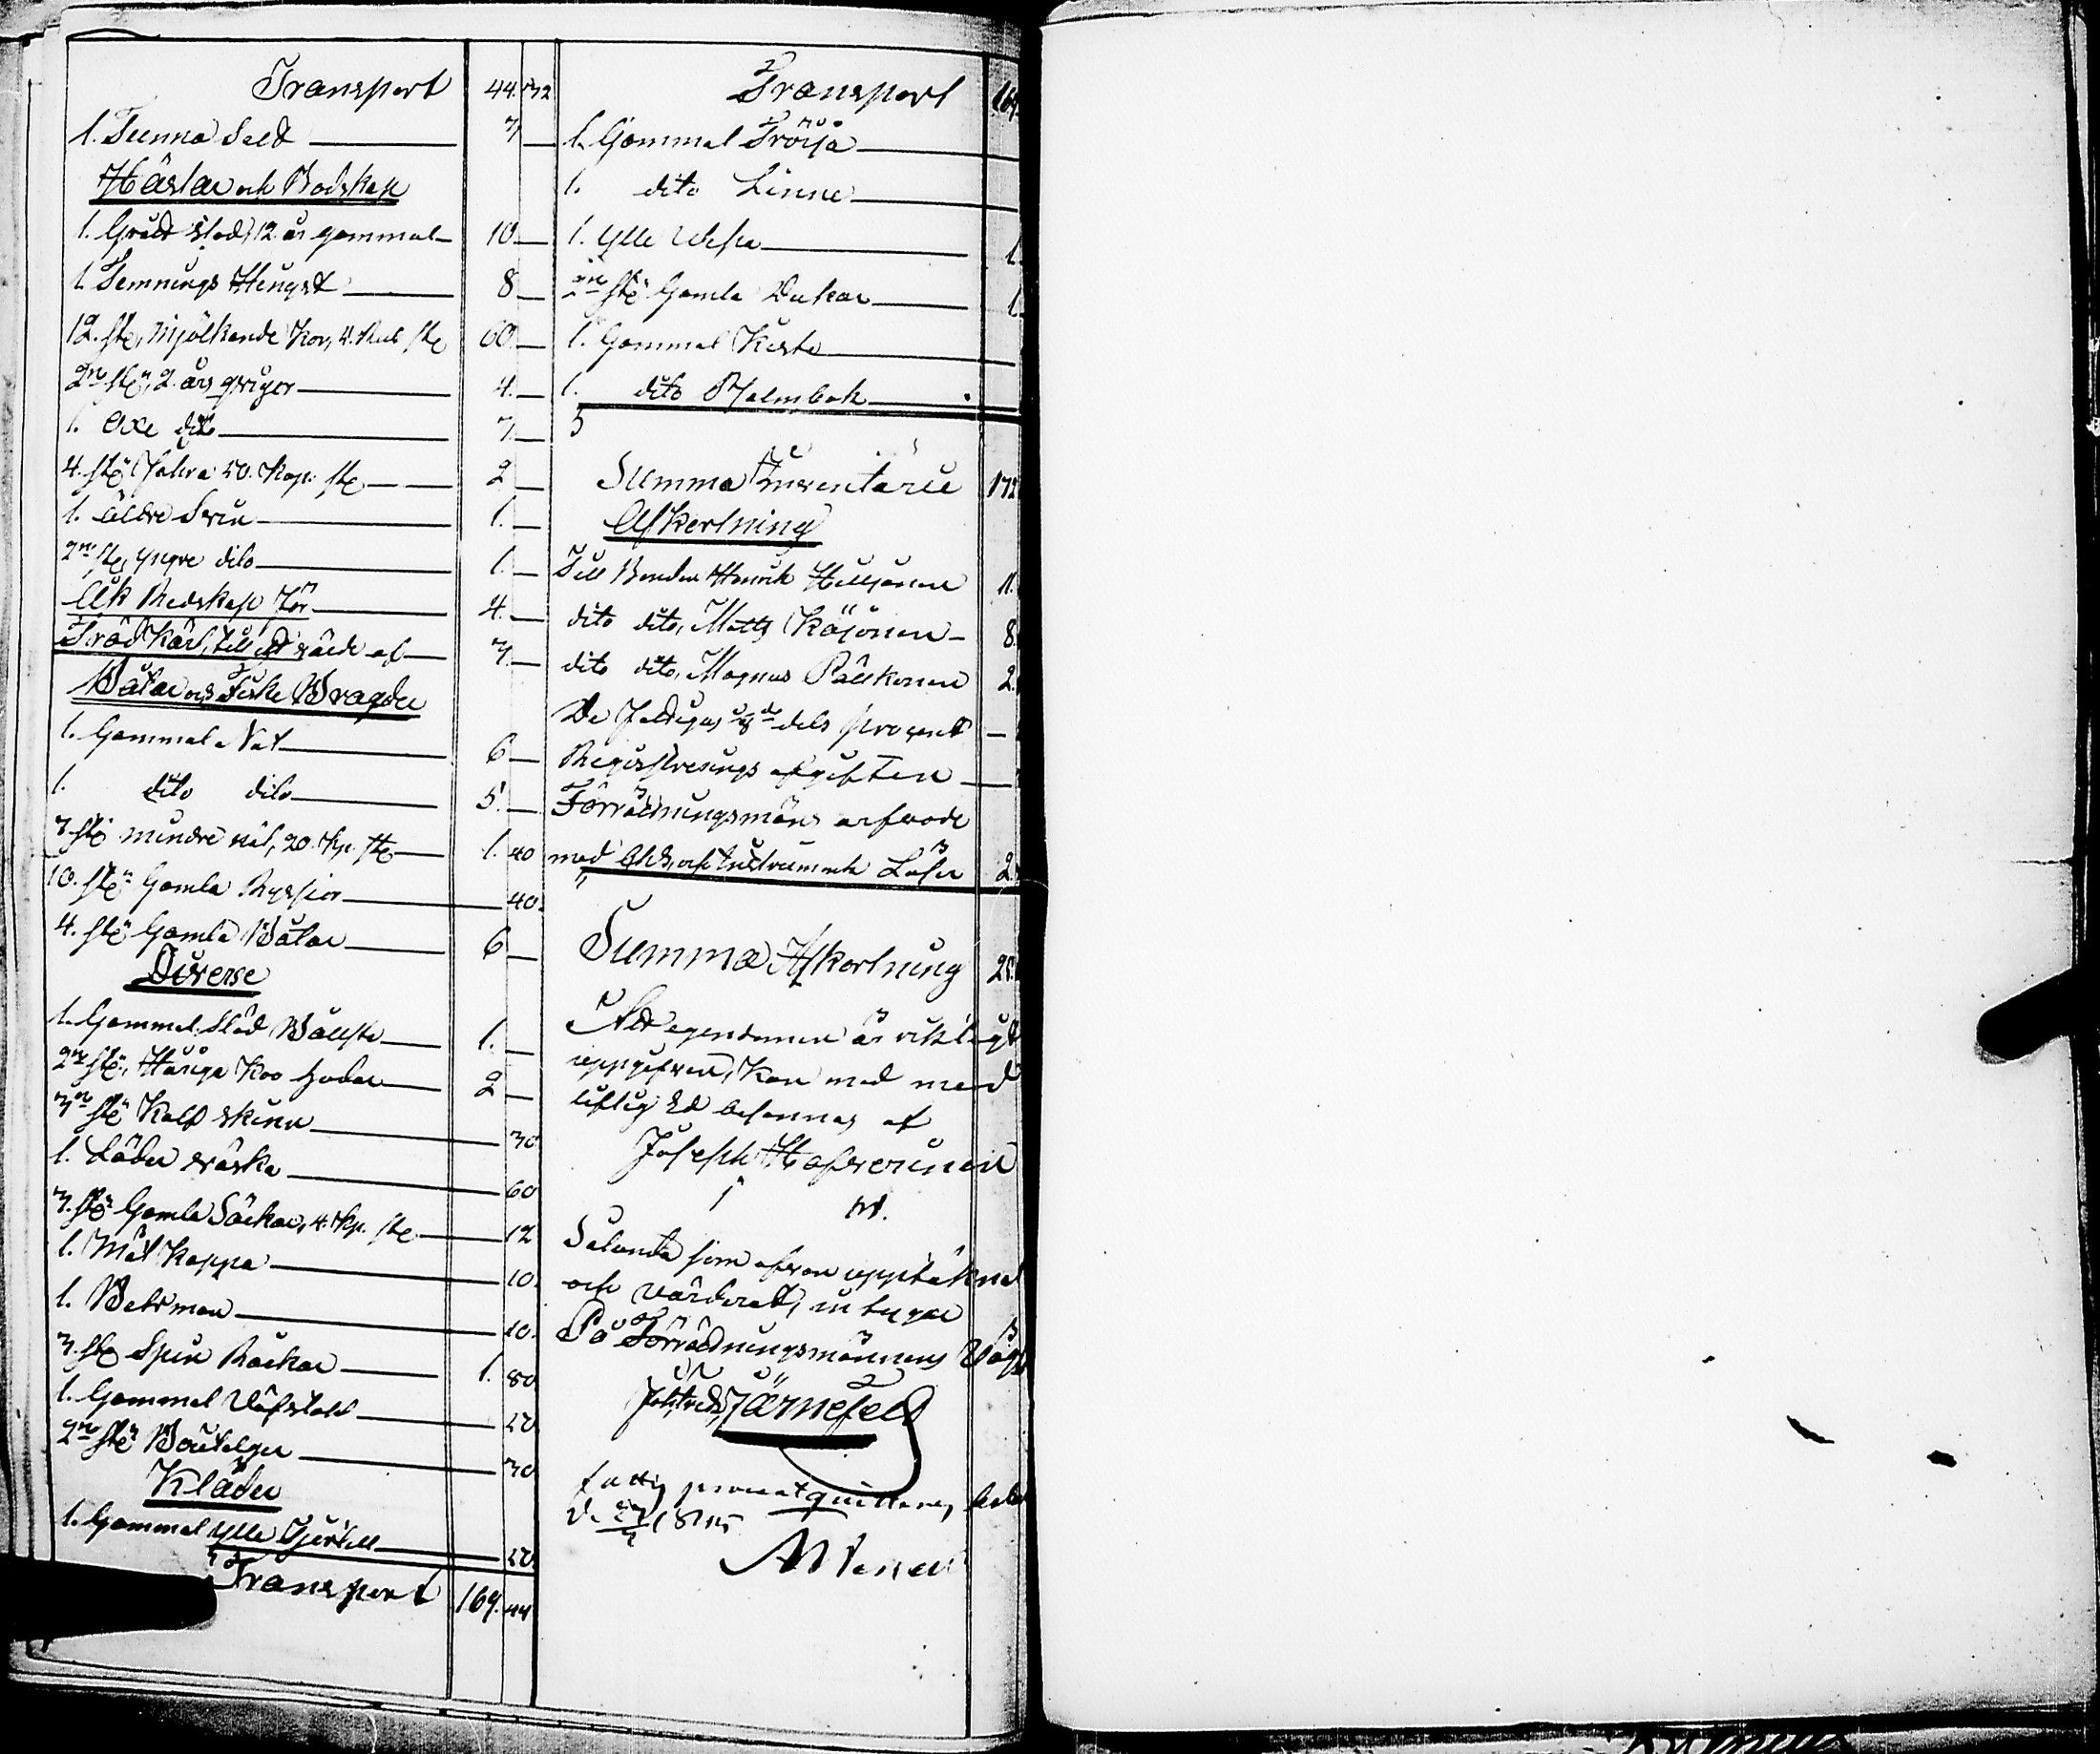 Transport 44. 32
1. Tunna Salt 3
Hästar och Bodskap
1. Grått stod, 12. år gammal 10
1. Temnings Hengst 8
12. stÿ, Mjölkande Kor, 4. Rub stÿ 60
2ne stÿ, 2. års qvigor 4.
1. Oxe dito 3
4. stÿ Kalvar 50. Kop. stÿ 2
1. äldre Svin 1.
2ne stÿ, yngre dito 1.
Åk Redskap för 4.
Träd Kärl, till ett värde af 3
Båtar och Fiske Bragder
1. Gammal Not 6
1. dito dito 5.
7 stÿ mindre nät, 20. Kp. stÿ 1. 40
10. stÿ Gamla Ryssior 40.
4. stÿ Gamla Båtar 6
Diverse
1. Gammal Släd 1.
2ne stÿ, Koo hudar 2
3ne stÿ Kalf skinn 30
1. Läder väska 60
3. stÿ Gamla Säckar, 4. Kp. stÿ 12
1. Mål Kappa 10.
1. Betsman 10.
3. stÿ Spin Råckar 1. 80
1. Gammal Väfstol 50
2ne stÿ Boutelger 30
Kläder
1. Gammal ylle Kjortell 50
Transport 169. 44
Transport 169.
1. Gammal Tröija
1. dito Linne
1. ylle 1
stÿ Gamla Dukar 1
1. Gammal Kista
1. dito Psalmbok
Summa Inventarie 172
Afkortning
Till Bonden Henrik 11.
dito dito, Matts Käyönen 8.
dito dito, Magnus Pälkonen 2.
De 8de dels procent
Registrerings afgiften
Förrättningsmäns arfvode
med och Instrumente Lösen 2.
Summa Afkortning 25.
Att egendomen är riktigt
uppgifven, kan med med
liflig Ed besannas af
Joseph Hafverinen
Sålunda som ofvan upptäknat
och värderat, intygar
På Förrättningsmännens Väg
Järnefelt
fattig procent quitteras